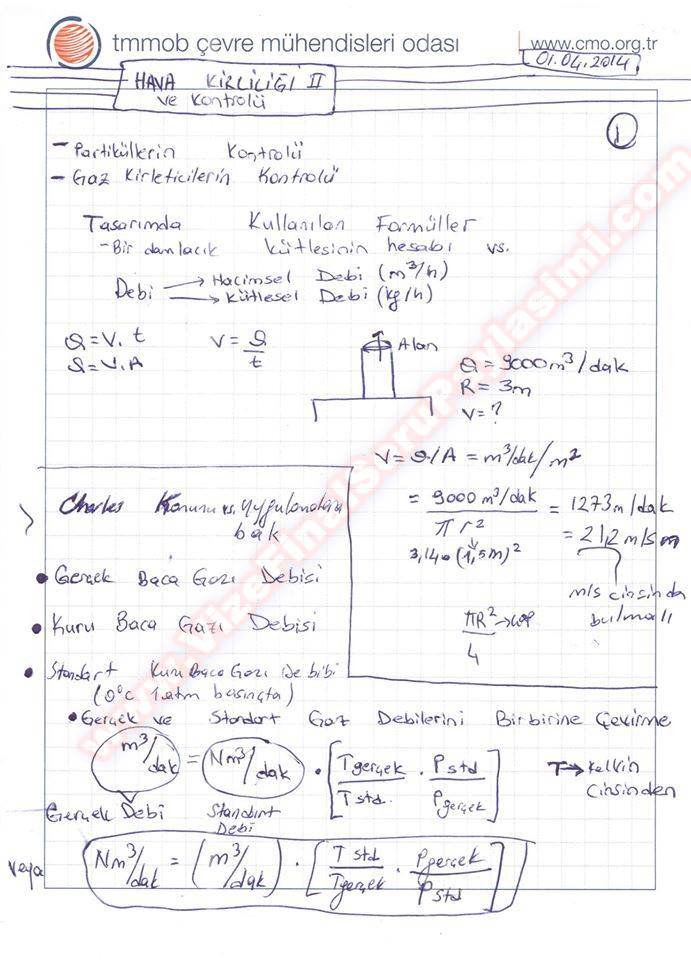 tmmob çevre mühendisleri odası
www.cmo.org.tr
01.04.2014
HAVA KİRLİLİĞİ II
ve Kontrolü
1
- Partiküllerin Kontrolü
- Gaz Kirleticilerin Kontrolü
Tasarımda Kullanılan Formüller
- Bir damlacık kütlesinin hesabı vs.
Debi → Hacimsel Debi (m³/h)
→ Kütlesel Debi (kg/h)
Q = V. t V = Q/t
Q = V.A
Alan
Q = 9000 m³/dak
R = 3m
V = ?
V = Q/A = m³/dak/m²
= 9000 m³/dak / π r² = 1273 m/dak
3,14 • (1,5m)² = 21,2 m/s
m/s cinsinden bulmalı
πR²/4 → çap
Charles Kanunu vs. uygulamaları
bak
• Gerçek Baca Gazı Debisi
• Kuru Baca Gazı Debisi
• Standart Kuru Baca Gazı Debibi
(0°C 1 atm basınçta)
• Gerçek ve Standart Gaz Debilerini Birbirine Çevirme
m³/dak = Nm³/dak • [Tgerçek/Tstd. . Pstd/Pgerçek] T → Kelvin
cinsinden
Gerçek Debi Standart
Debi
veya Nm³/dak = (m³/dak) . [Tstd/Tgerçek . Pgerçek/Pstd]
www.VizeFinalSoruPaylasimi.com